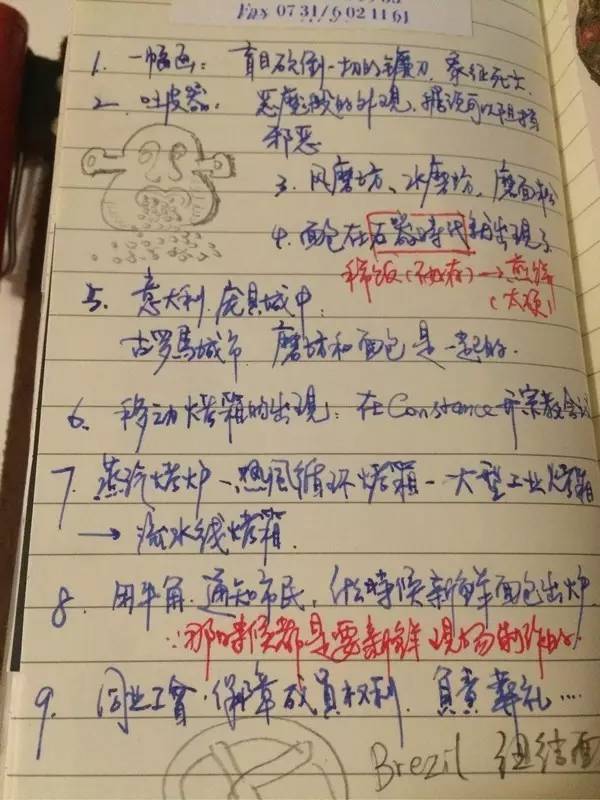 Fax 0731/6021161
1. 一幅画: 盲目砍倒一切的镰刀, 象征死亡.
2. 吐皮器: 恶魔般的外現、据说可以阻挡
邪恶
3. 风磨坊、水磨坊、磨面粉
4. 面包在石器時代就出現了
稀饭(不好存)→煎饼
(太硬)
5. 意大利.庞貝城中:
古罗馬城市 磨坊和面包是一起的.
6. 移动烤箱的出現: 在Constance开宗教会议
7. 蒸汽烤炉-热風循环烤箱-大型工业烤箱
→流水线烤箱.
8. 用牛角.通知市民, 什么時候新鲜面包出炉.
∵那時候都是要新鲜現场制作的.
9. 同业工會.保障成员权利. 負責葬礼....
Brezil 纽结面